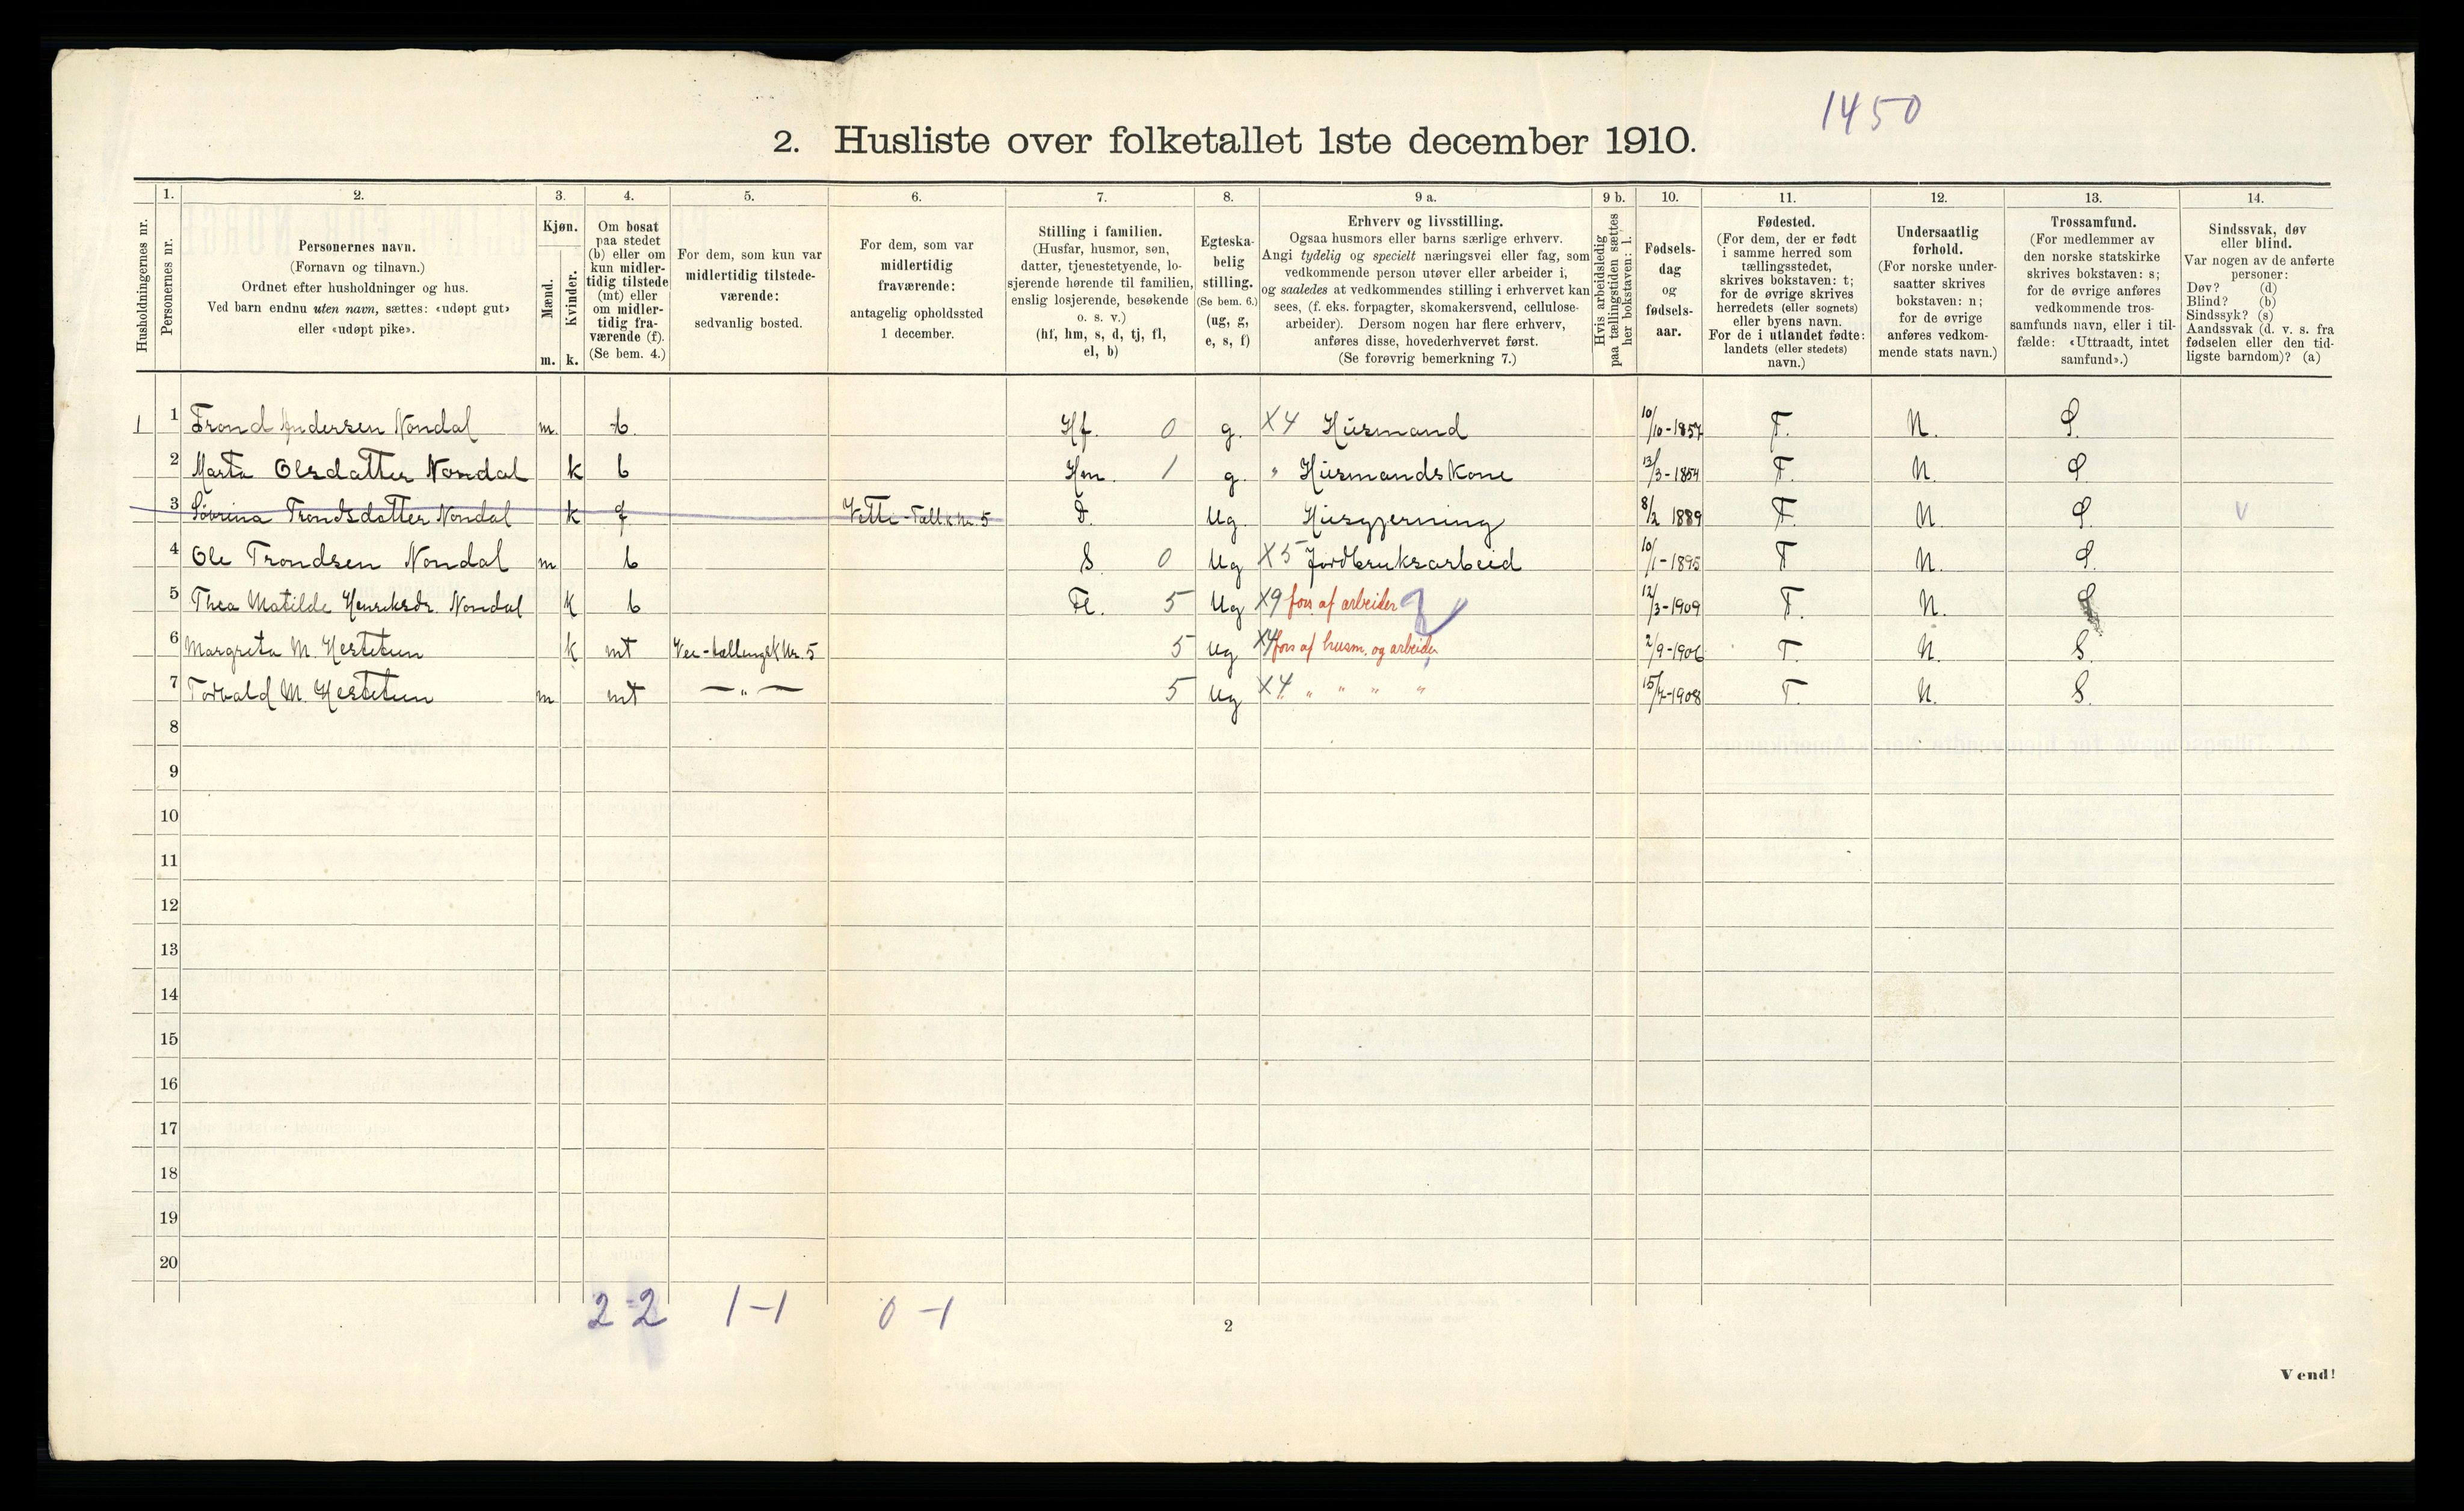 1450
2. Husliste over folketallet 1ste december 1910.
Husholdningernes nr.
1.
Personernes nr.
2.
Personernes navn.
(Fornavn og tilnavn.)
Ordnet efter husholdninger og hus.
Ved barn endnu uten navn, sættes: «udøpt gut»
eller «udøpt pike».
3.
Kjøn.
Mænd.
Kvinder.
m. k.
4.
Om bosat
paa stedet
(b) eller om
kun midler-
tidig tilstede
(mt) eller
om midler-
tidig fra-
værende (f).
(Se bem. 4.)
5.
For dem, som kun var
midlertidig tilstede-
værende:
sedvanlig bosted.
6.
For dem, som var
midlertidig
fraværende:
antagelig opholdssted
1 december.
7.
Stilling i familien.
(Husfar, husmor, søn,
datter, tjenestetyende, lo-
sjerende hørende til familien,
enslig losjerende, besøkende
o. s. v.)
(hf, hm, s, d, tj, fl,
el, b)
8.
Egteska-
belig
stilling.
(Se bem. 6.)
(ug, g,
e, s, f)
9 a.
Erhverv og livsstilling.
Ogsaa husmors eller barns særlige erhverv.
Angi tydelig og specielt næringsvei eller fag, som
vedkommende person utøver eller arbeider i,
og saaledes at vedkommendes stilling i erhvervet kan
sees, (f. eks. forpagter, skomakersvend, cellulose-
arbeider). Dersom nogen har flere erhverv,
anføres disse, hovederhvervet først.
(Se forøvrig bemerkning 7.)
9 b.
Hvis arbeidsledig
paa tællingstiden sættes
her bokstaven: l.
10.
Fødsels-
dag
og
fødsels-
aar.
11.
Fødested.
(For dem, der er født
i samme herred som
tællingsstedet,
skrives bokstaven: t;
for de øvrige skrives
herredets (eller sognets)
eller byens navn.
For de i utlandet fødte:
landets (eller stedets)
navn.)
12.
Undersaatlig
forhold.
(For norske under-
saatter skrives
bokstaven: n;
for de øvrige
anføres vedkom-
mende stats navn.)
13.
Trossamfund.
(For medlemmer av
den norske statskirke
skrives bokstaven: s;
for de øvrige anføres
vedkommende tros-
samfunds navn, eller i til-
fælde: «Uttraadt, intet
samfund».)
14.
Sindssvak, døv
eller blind.
Var nogen av de anførte
personer:
Døv? (d)
Blind? (b)
Sindssyk? (s)
Aandssvak (d. v. s. fra
fødselen eller den tid-
ligste barndom)? (a)
1 1 Trond Andersen Nondal m. b Hf. 0 g. X4 Husmand 10/10-1857 T. N. S.
2 Marta Olsdatter Nondal k b Hm. 1 g. " Husmandskone 13/3-1854 T. N. S
3 Trondsdatter Nondal k f Vetti-Tællk nr. 5 D. Ug. Husgjerning 8/2 1889 T. N. S. v
4 Ole Trondsen Nondal m b S. 0 Ug X5 Jordbruksarbeid 10/1-1895 T N. S.
5 Thea Matilde Henriksdr. Nondal k b Fl. 5 Ug X9 fors af arbeider 12/3-1909 T. N. S
6 Margreta M. Hestetun k mt Vee-tællingsk Nr. 5 5 Ug X4 fors af husm. og arbeider 2/9-1906 T. N. S.
7 Torvald M. Hestetun m mt — " — 5 Ug X4 " " " " 15/7-1908 T. N. S.
8
9
10
11
12
13
14
15
16
17
18
19
20
2-2 1-1 0-1
2
Vend!